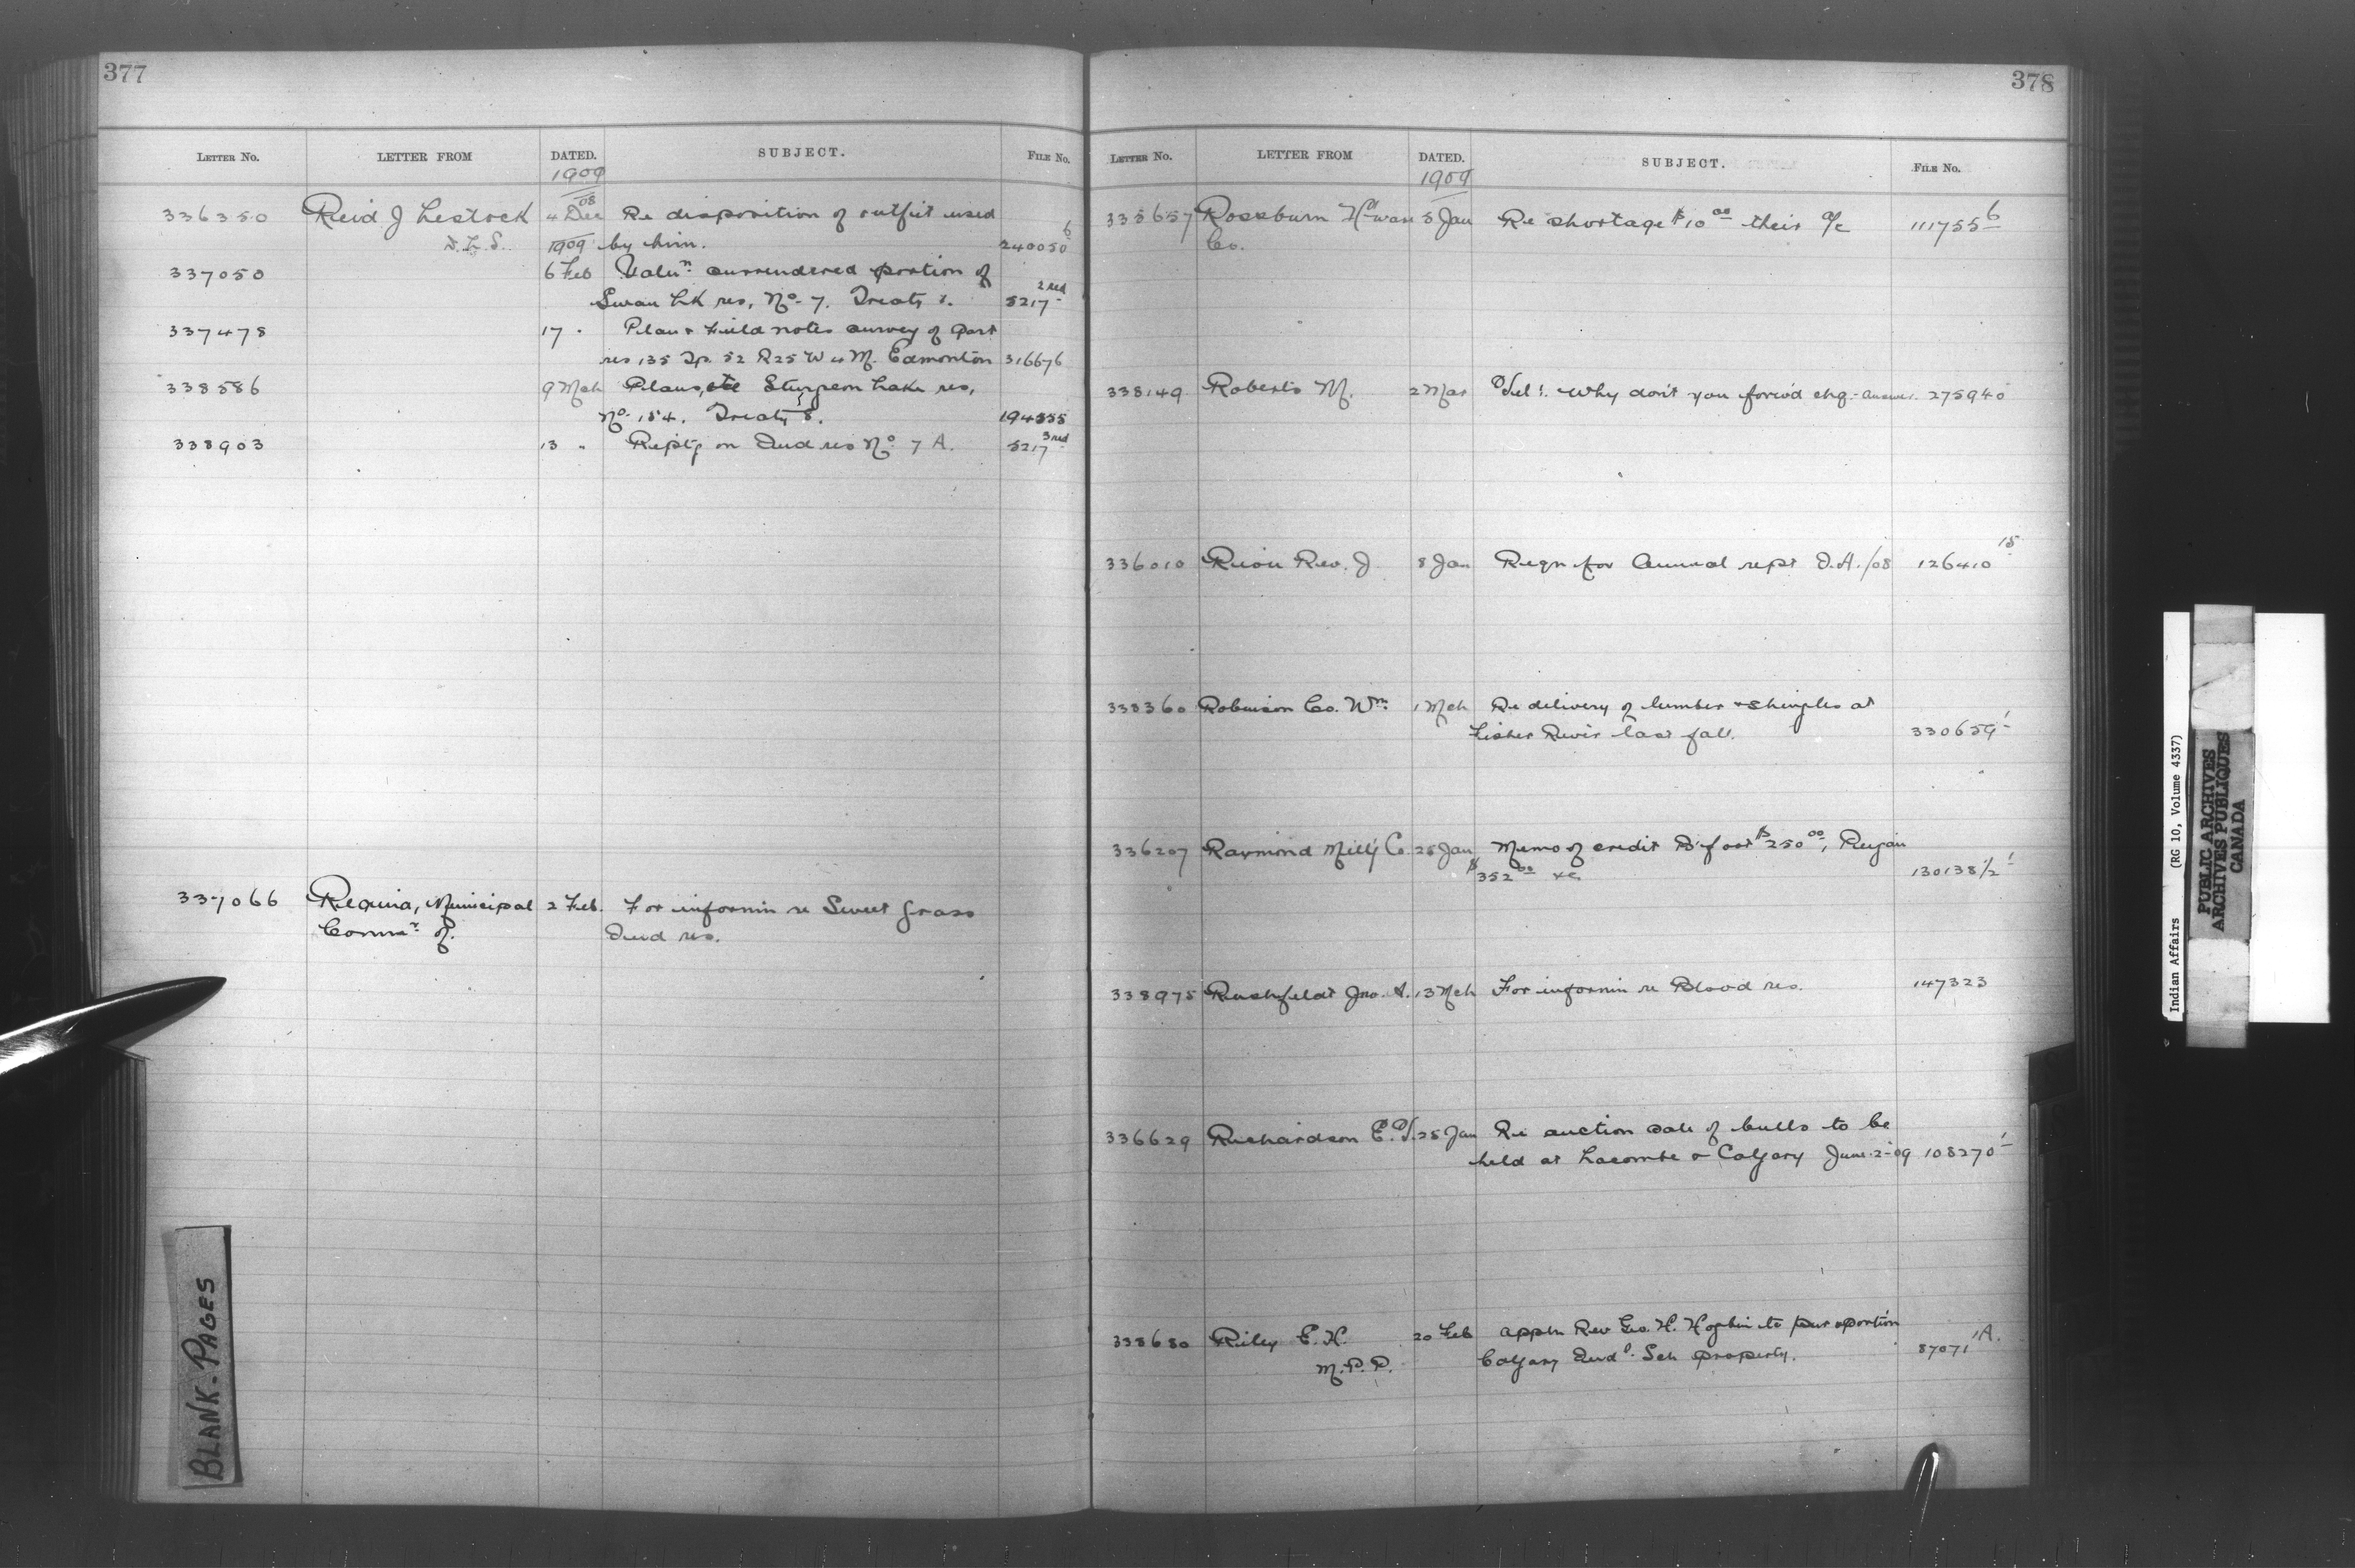 377
LETTER No. LETTER FROM DATED. SUBJECT. FILE No.
1909
336350 Reid J Lestock 4 Dec 08 Re disposition of outfit used
D.L.S. 1909 by him. 240050 6
337050 6 Feb Valun surrendered portion of
Swan Lk res, No 7. Treaty 1. 5217 2 red
337478 17 " Plan & Field notes survey of part
res 135 Tp. 52 R25 W 4 M. Edmonton 316676
338586 9 Mch Plans, etc Sturgeon Lake res,
No. 154. Treaty 8. 194535
338903 13 " Reptg on Ind res No 7 A. 5217 3 red
337066 Regina, Municipal 2 Feb. For informn re Sweet Grass
Commr of. Ind res.
BLANK-PAGES
378
LETTER No. LETTER FROM DATED. SUBJECT. FILE No.
1909
335657 Rossburn Hdware 5 Jan Re shortage $10 00 their a/c 111755 6
Co.
338149 Roberts M. 2 Mar Tel: Why don't you forw'd chq. - answer. 275940
336010 Riou Rev. J 8 Jan Reqn for Annual rept I.A./08 126410 15
338360 Robinson Co. Wm 1 Mch Re delivery of lumber & shingles at
Fisher River last fall. 330659 1
336207 Raymond Mill'g Co 25 Jan Memo of credit B'foot $250 00, Peigan
$352 00 &c. 130138 1/2 1
338975 Rushfeldt Jno. A. 13 Mch For informn re Blood res. 147323
336629 Richardson E. 25 Jan Re auction sale of bulls to be
held at Lacombe & Calgary June-2-09 108270 1
338680 Riley E. H. 20 Feb appln Rev Geo. H. to pur aportion
M.P.P. Calgary Indl. Sch property. 87071 1A.
Indian Affairs (RG 10, Volume 4337)
PUBLIC ARCHIVES
ARCHIVES PUBLIQUES
CANADA